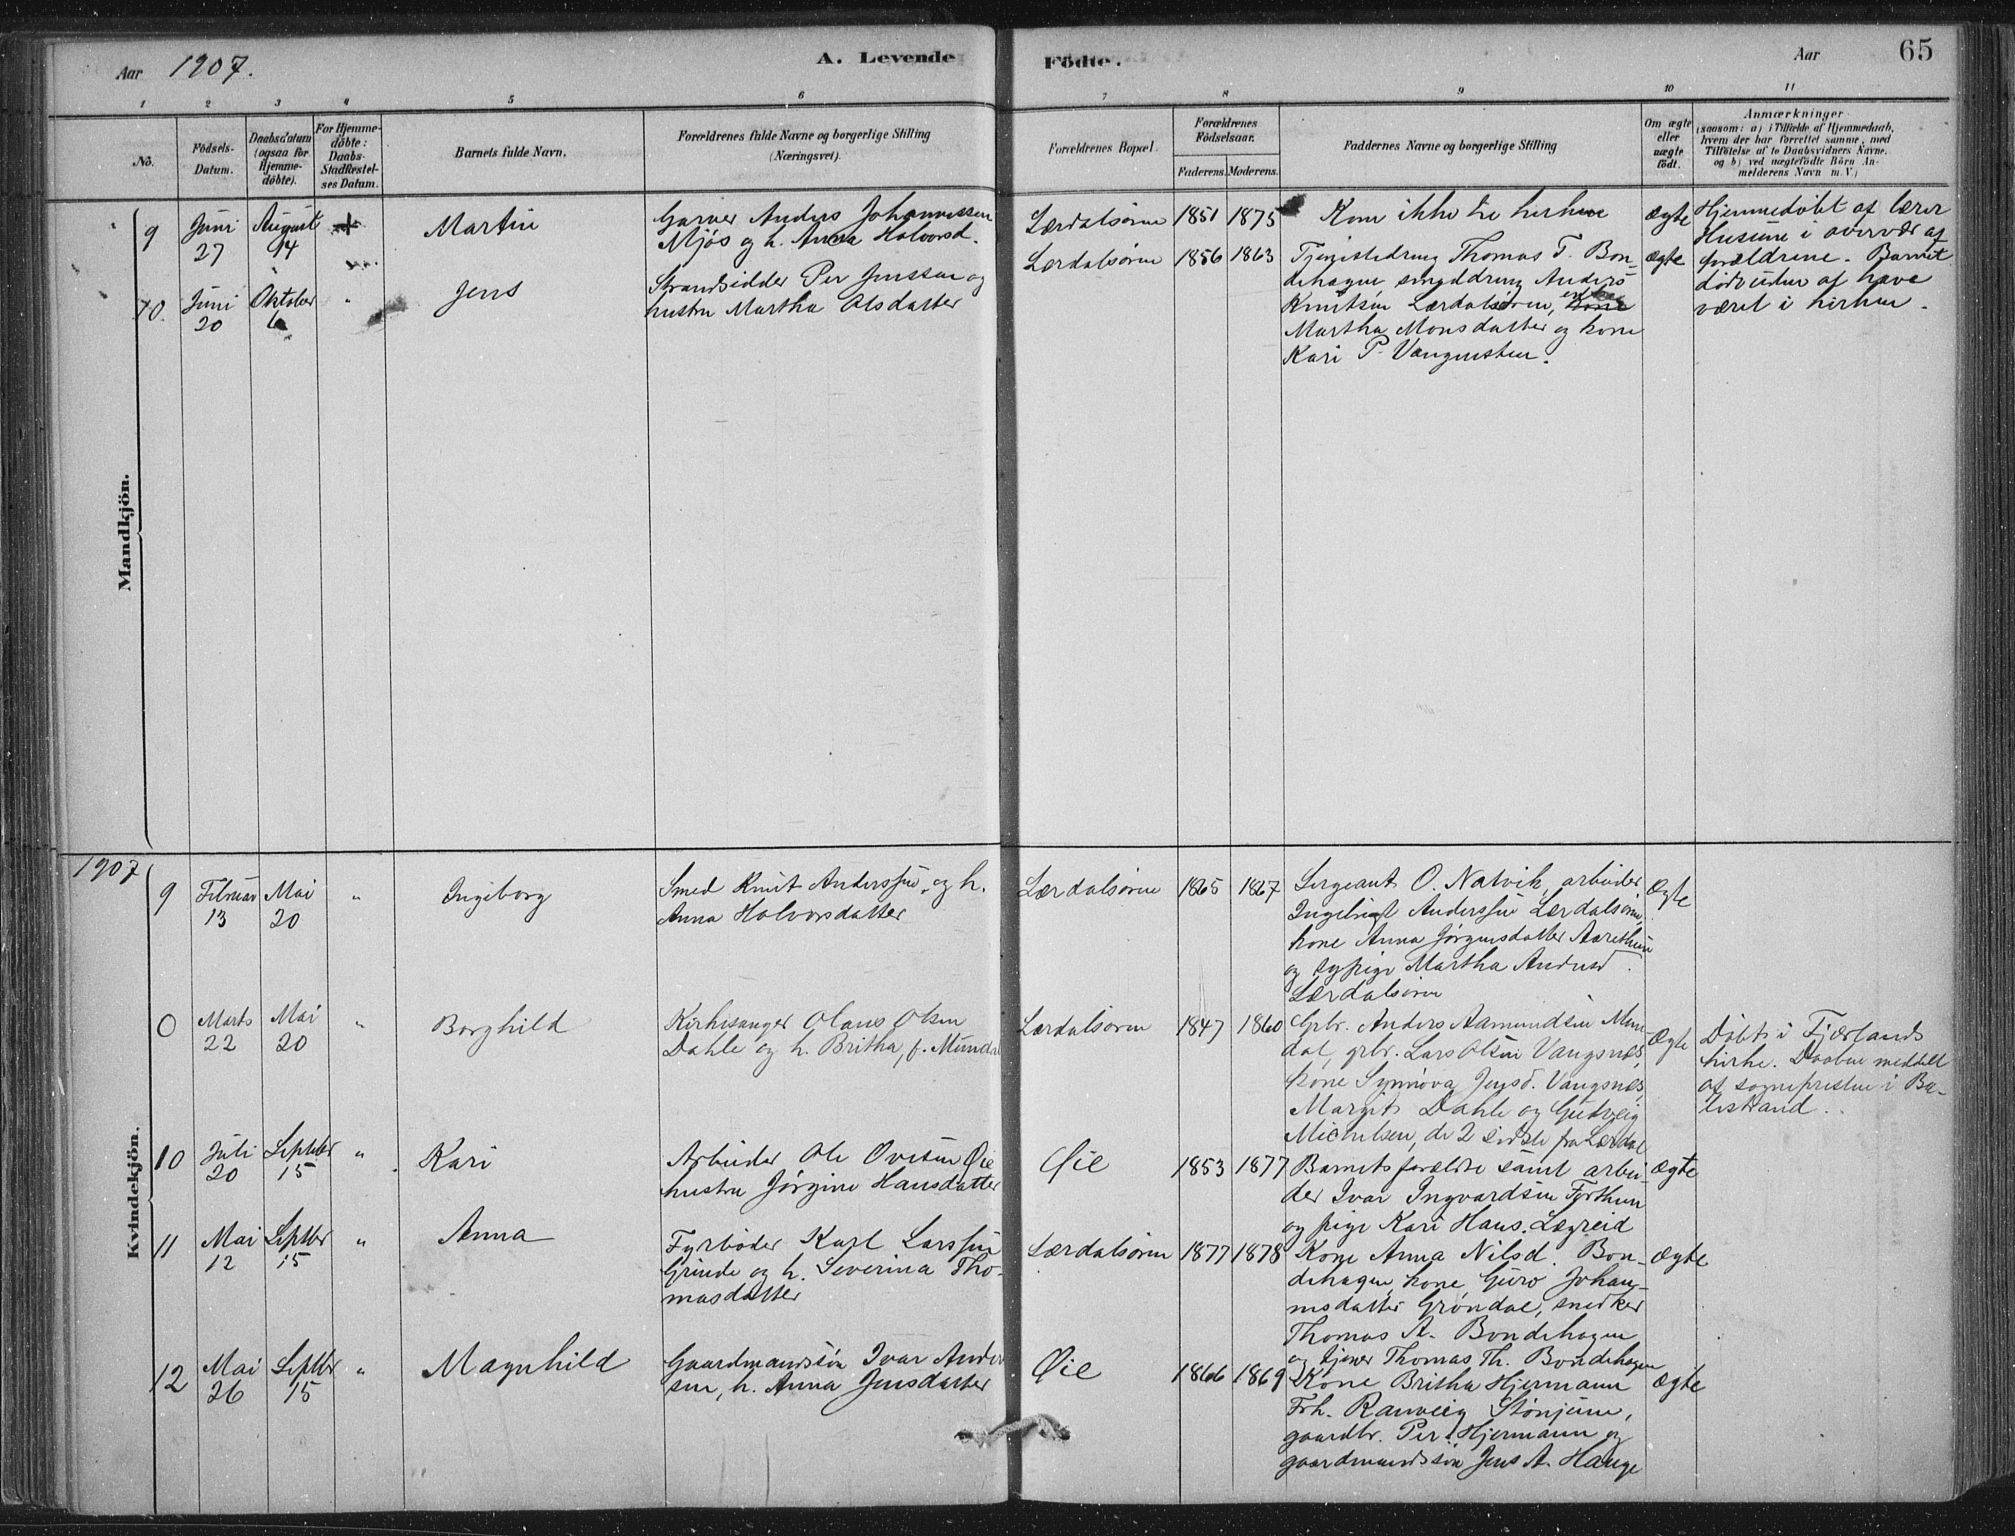 Aar 1907.
A. Levende Födte.
Aar
65
1 2 3 4 5 6 7 8 9 10 11
No.
Födsels-
Datum.
Daabsdatum
(ogsaa for
Hjemme-
döbte).
For Hjemme-
döbte:
Daabs-
Stadfæstel-
ses Datum.
Barnets fulde Navn.
Forældrenes fulde Navne og borgerlige Stilling
(Næringsvei).
Forældrenes Bopæl.
Forældrenes
Födselsaar.
Faderens. Moderens.
Faddernes Navne og borgerlige Stilling
Om ægte
eller
uægte
födt.
Anmærkninger
(saasom: a) i Tilfælde af Hjemmedaab,
hvem der har forrettet samme, med
Tilföielse af to Daabsvidners Navne.
og b) ved uægtefödte Börn An-
melderens Navn m. V.)
Mandkjön.
9
Juni
27
August
14
+
Martin
Garver Anders Johannessen
Mjøs og h. Anna Halvorsd.
Lærdalsøren
1851
1875
Kom ikke til kirken
ægte
Hjemmedøbt af lærer
Husum i overvær af
forældrene. Barnet
døde uden at have
været i kirken.
10.
Juni
20
Oktober
6
"
Jens
Strandsidder Per Jenssen og
hustru Martha Olsdatter
Lærdalsøren
1856
1863
Tjenestedreng Thomas T. Bon-
dehagen, Anders
Knutsen Lærdalsøren,
Martha Monsdatter og kone
Kari P. Vangensteen.
ægte
1907
Kvindekjön.
9
Februar
13
Mai
20
"
Ingeborg
Smed Knut Anderssen og h.
Anna Halvorsdatter
Lærdalsøren
1865
1867
Sergeant O. Natvik, arbeider
Ingebrigt Anderssen Lærdalsøren,
kone Anna Jørgensdatter Aarethun
og sypige Martha Andersd.
Lærdalsøren
Ægte
0
Marts
22
Mai
20
"
Borghild
Kirkesanger Olaus Olsen
Dahle og h. Britha f. Mundal
Lærdalsøren
1847
1860
Gbr. Anders Aamundsen Mun-
dal, grbr. Lars Olsen Vangsnes,
kone Synnøva Jensd. Vangsnes,
Margit Dahle og Gudveig
Michelsen, de 2 sidste fra Lærdal
Ægte
Døbt i Fjærlands
kirke. Daaben meddelt
af sognepresten i Ba-
lestrand.
10
Juli
20
Septbr
15
"
Kari
Arbeider Ole Ovesen Øie
hustru Jørgine Hansdatter
Øie
1853
1877
Barnets forældre samt arbei-
der Ivar Ingvardsen Forthun
og pige Kari Hans. Lægreid
ægte
11
Mai
12
Septbr
15
"
Anna
Fyrbøder Karl Larssen
Grinde og h. Severina Tho-
masdatter
Lærdalsøren
1877
1878
Kone Anna Nilsd. Bon-
dehagen, kone Guro Johan-
nesdatter Grøndal, snedker
Thomas A. Bondehagen
og tjener Thomas Th. Bondehagen
ægte
12
Mai
26
Septbr
15
"
Magnhild
Gaardmandssøn Ivar Ander-
sen, h. Anna Jensdatter
Øie
1866
1869
Kone Britha Hjermann
Frk. Ranveig Stønjum,
gaardbr. Per Hjermann og
gaardmandssøn Jens A. Hauge
ægte